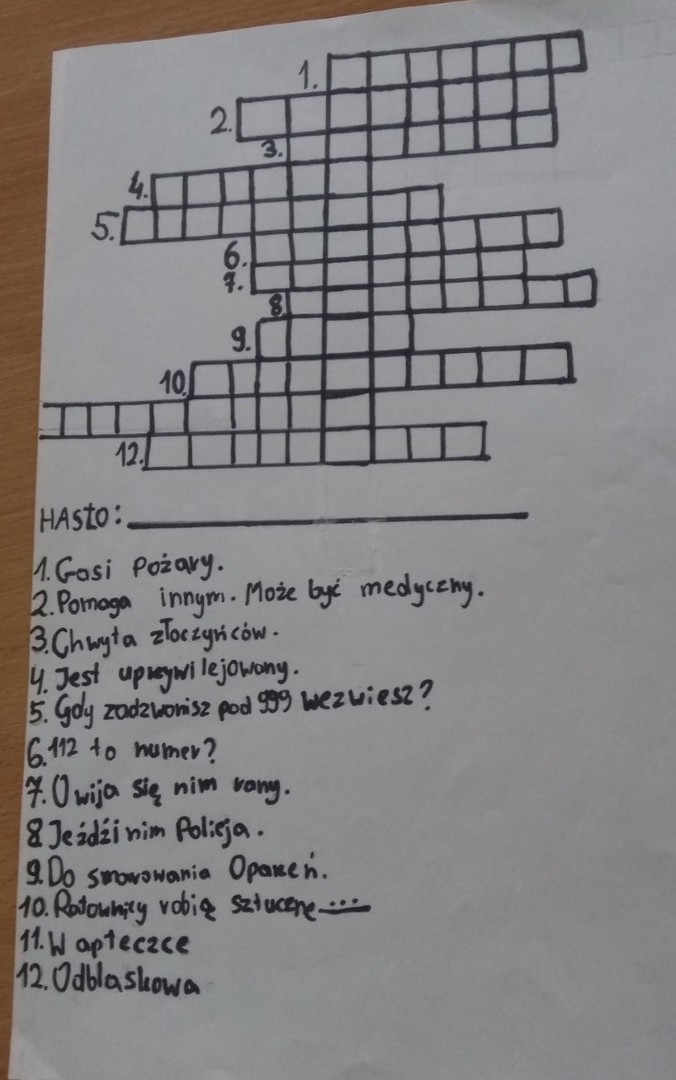 1.
2.
3.
4.
5.
6.
7.
8
9.
10.
12.
HASŁO:
1. Gasi Pożary.
2. Pomaga innym. Może być medyczny.
3. Chwyta złoczyńców.
4. Jest uprzywilejowany.
5. Gdy zadzwonisz pod 999 wezwiesz?
6. 112 to numer?
7. Owija się nim rany.
8. Jeździ nim Policja.
9. Do smarowania Oparzeń.
10. Ratownicy robią sztuczne...
11. W apteczce
12. Odblaskowa